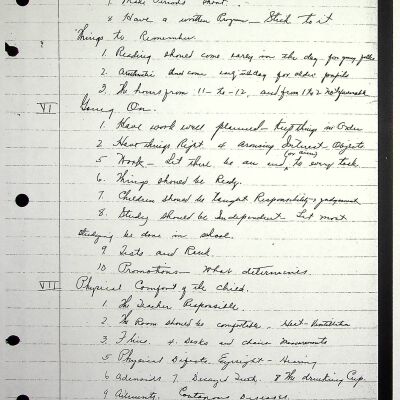 1. Make Periods Short.
* Have a written Prgm — Stick to it
Things to Remember.
1. Reading should come early in the day for young
2. Arithmetic should come early in day for older pupils
3. The hours from 11 - to - 12, and from 1 to 2 not favorable
VI Going On.
1. Have work well planned — Keep things in Order
2. Have things Right 4 arousing Interest Objects
5 Work — Let there be an end (or aim) to every task
6. Things should be Ready.
7. Children should be Taught Responsibility & judgement
8. Study should be Independent Let most
studying be done in school.
9 Tests and Rank
10 Promotions — What determines.
VII Physical Comfort of the child.
1. The Teacher Responsible
2. The Room should be comfortable. Heat - Ventilation
3 4. Desks and chairs Measurements
5 Physical Defects. Eyesight - Hearing
6 Adenoids 7. Decayed Teeth 8 The drinking Cup.
9 Ailments. Contagious Diseases.